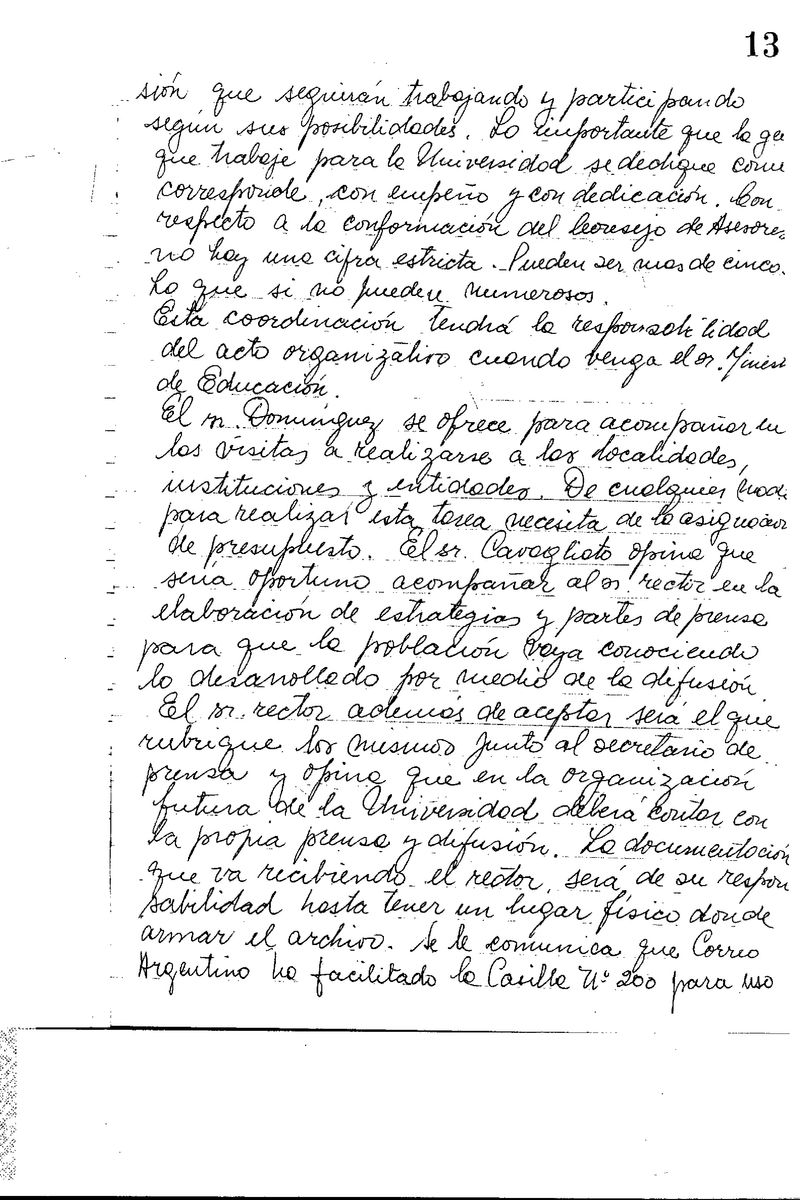 13
sión que seguirán trabajando y participando
según sus posibilidades. Lo importante que la ge
que trabaje para la Universidad se dedique como
corresponde, con empeño y con dedicación. Con
respecto a la conformación del Consejo de Asesores
no hay una cifra estricta. Pueden ser mas de cinco.
Lo que si no pueden numerosos.
Esta coordinación tendrá la responsabilidad
del acto organizativo cuando venga el sr. Minist
de Educación.
El sr. Domínguez se ofrece para acompañar en
las visitas a realizarse a las localidades,
instituciones y entidades. De cualquier mod
para realizar esta tarea necesita de la asignación
de presupuesto. El sr. Cavagliato opina que
sería oportuno acompañar al sr rector en la
elaboración de estrategias y partes de prensa
para que la población vaya conociendo
lo desarrollado por medio de la difusión
El sr. rector además de aceptar será el que
rubrique los mismos junto al secretario de
prensa y opina que en la organización
futura de la Universidad deberá contar con
la propia prensa y difusión. La documentación
que va recibiendo el rector, será de su respon
sabilidad hasta tener un lugar físico donde
armar el archivo. Se le comunica que Correo
Argentino ha facilitado la Casilla Nº 200 para uso